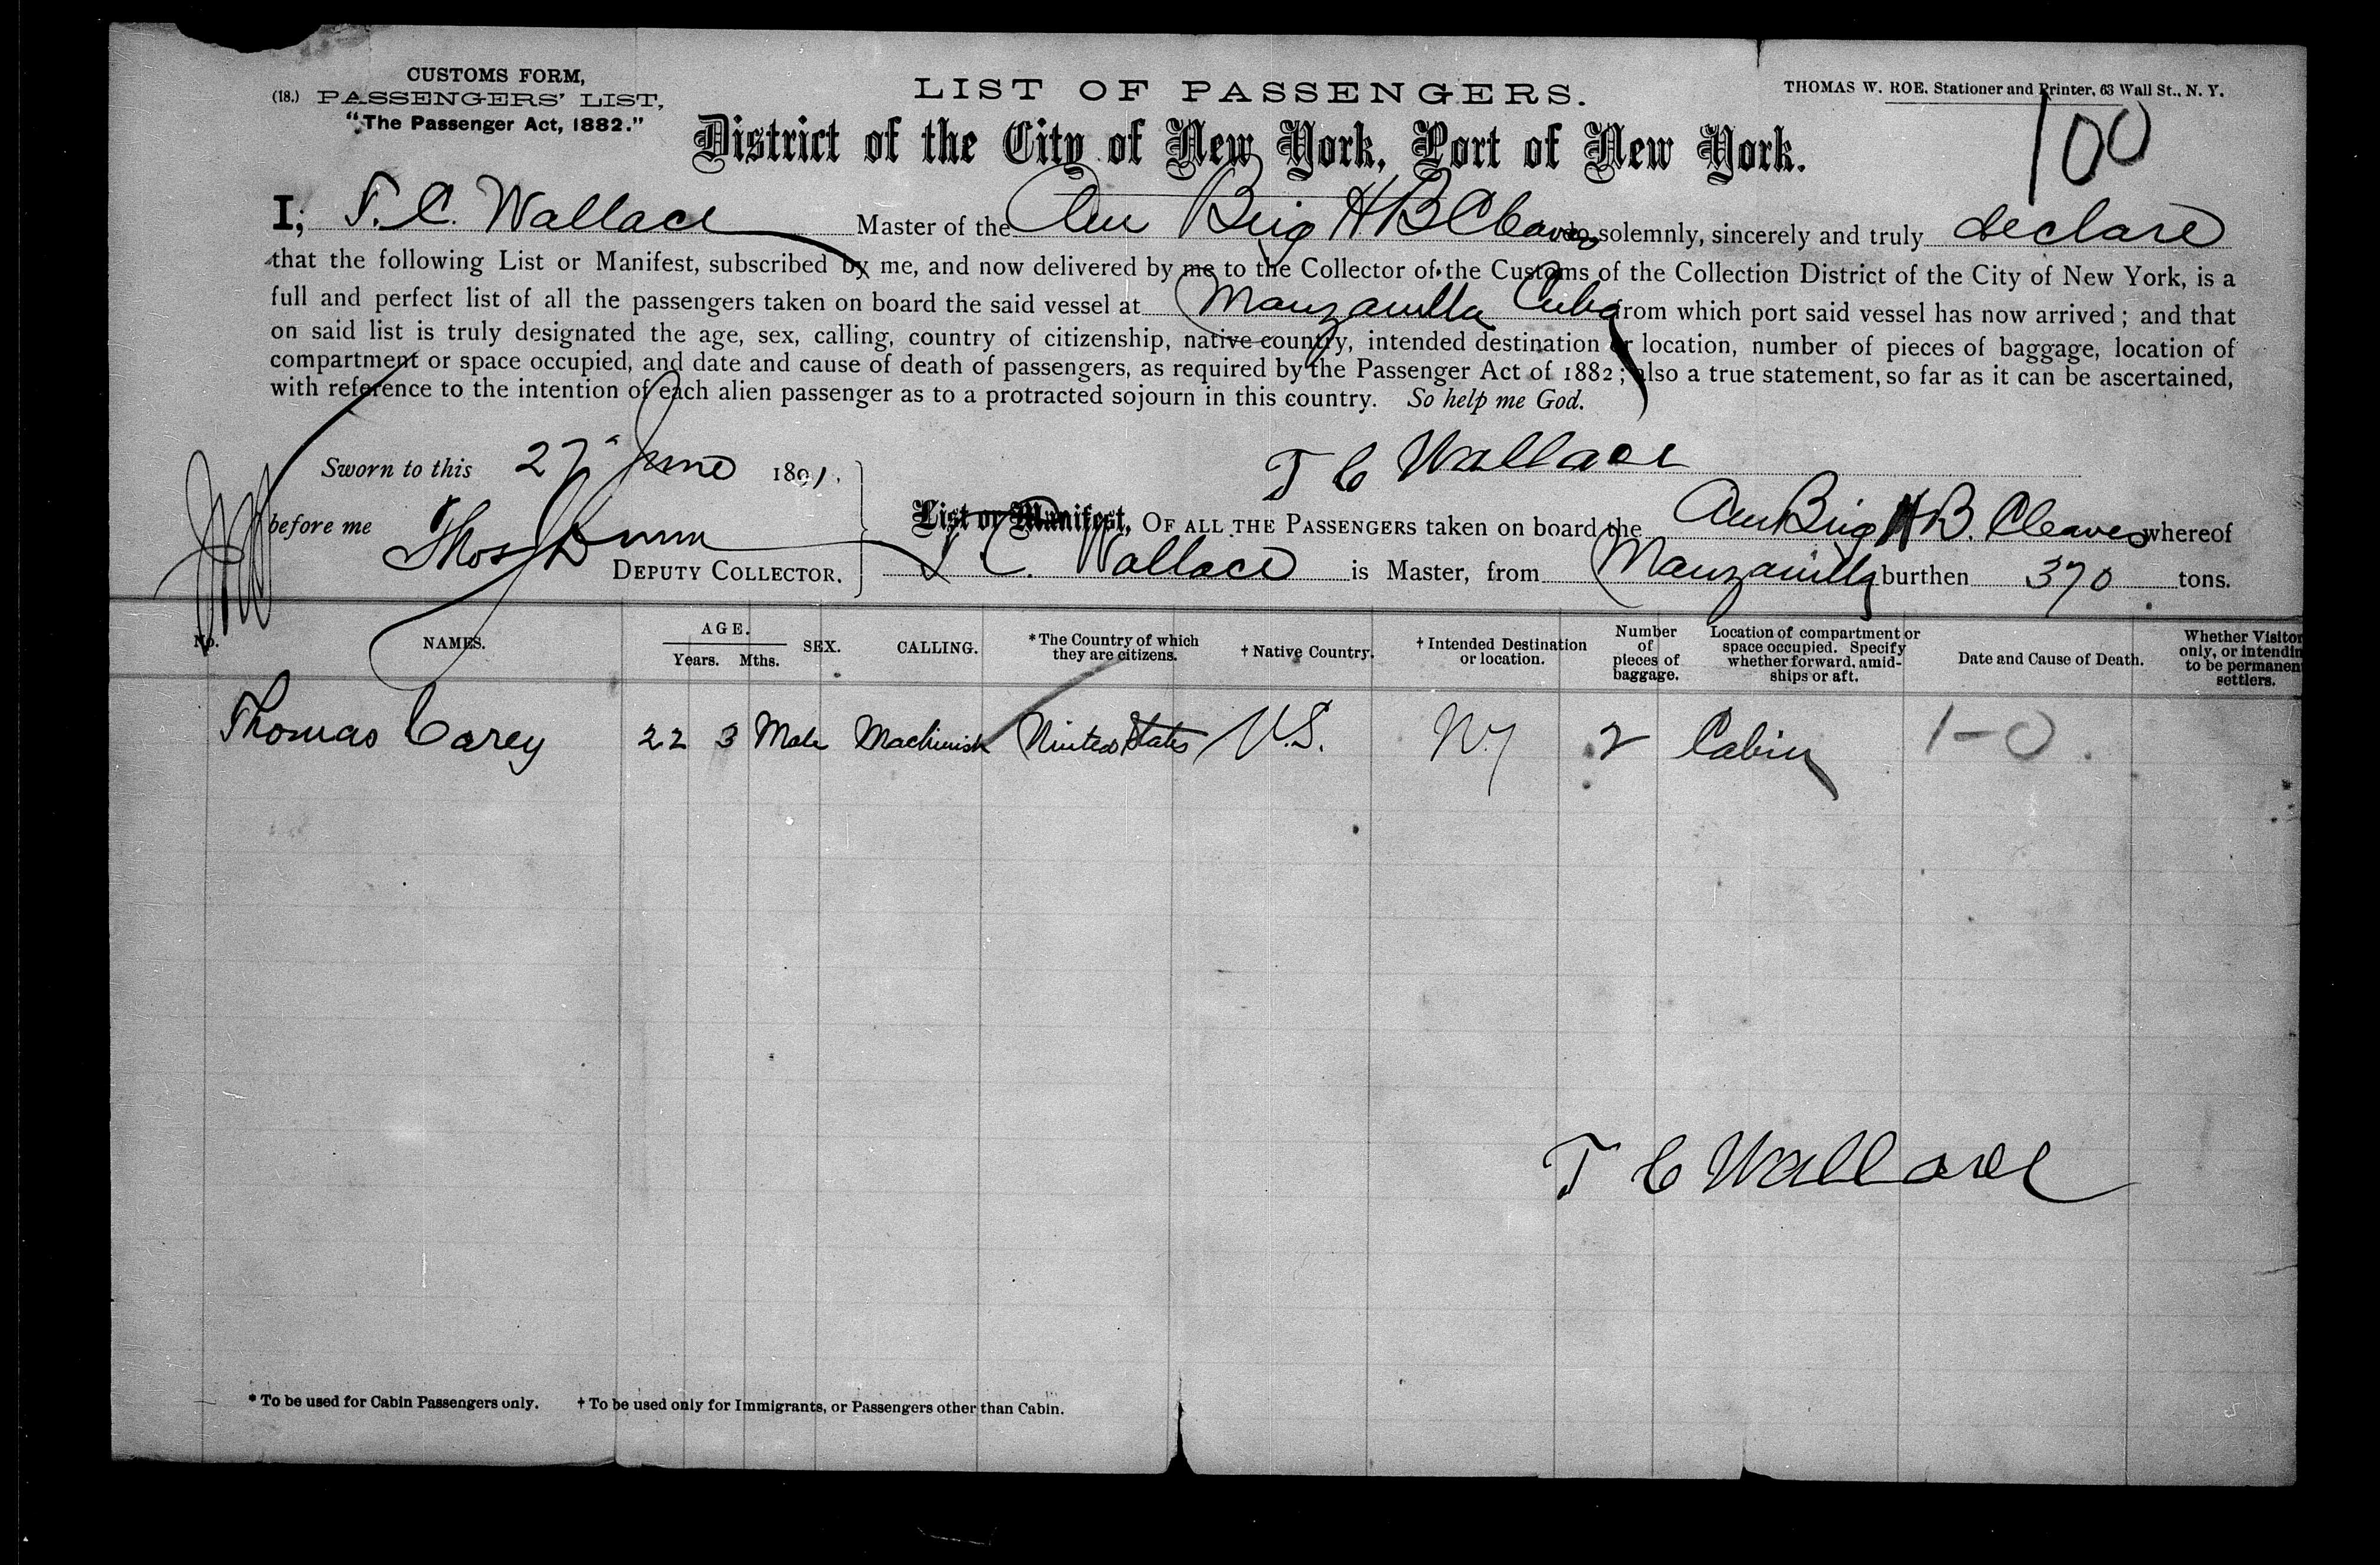 CUSTOMS FORM,
(18.) PASSENGERS' LIST,
"The Passenger Act, 1882."
LIST OF PASSENGERS.
THOMAS W. ROE, Stationer and Printer, 63 Wall St., N. Y.
100
District of the City of New York, Port of New York.
I, T. C. Wallace Master of the Am Brig H B Cleaves do solemnly, sincerely and truly declare
that the following List or Manifest, subscribed by me, and now delivered by me to the Collector of the Customs of the Collection District of the City of New York, is a
full and perfect list of all the passengers taken on board the said vessel at Manzanilla Cuba from which port said vessel has now arrived; and that
on said list is truly designated the age, sex, calling, country of citizenship, native country, intended destination or location, number of pieces of baggage, location of
compartment or space occupied, and date and cause of death of passengers, as required by the Passenger Act of 1882; also a true statement, so far as it can be ascertained,
with reference to the intention of each alien passenger as to a protracted sojourn in this country. So help me God.
Sworn to this 27 June 1891.
T C Wallace
before me Thos Dunn
DEPUTY COLLECTOR.
List or Manifest, OF ALL THE PASSENGERS taken on board the Am Brig H B. Cleaves whereof
T C. Wallace is Master, from Manzanilla burthen 370 tons.
No. NAMES. AGE. Years. Mths. SEX. CALLING. *The Country of which they are citizens. † Native Country. † Intended Destination or location. Number of pieces of baggage. Location of compartment or space occupied. Specify whether forward, amid-ships or aft. Date and Cause of Death. Whether Visitor only, or intendin to be permanen settlers.
Thomas Carey 22 3 Male Machinist United States U.S. N.Y 2 Cabin 1-0
T C Wallace
* To be used for Cabin Passengers only. † To be used only for Immigrants, or Passengers other than Cabin.